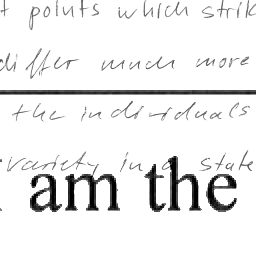 points which strik
differ much more
the individuals
variety in a state
am the